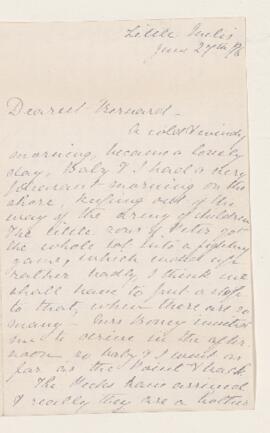 Little Metis
June 27th
Dearest Bernard -
A cold & windy
morning, became a lovely
day, Baby & I had a very
pleasant morning on the
shore, keeping out of the
way of the army of children
The little sons of got
the whole lot into a fighting
game, which ended up
rather badly, I think we
shall have to put a stop
to that, when there are so
many - Mrs invited
me to drive in the after
noon, so Baby & I went as
far as the Point & back
The have arrived
& really they are a